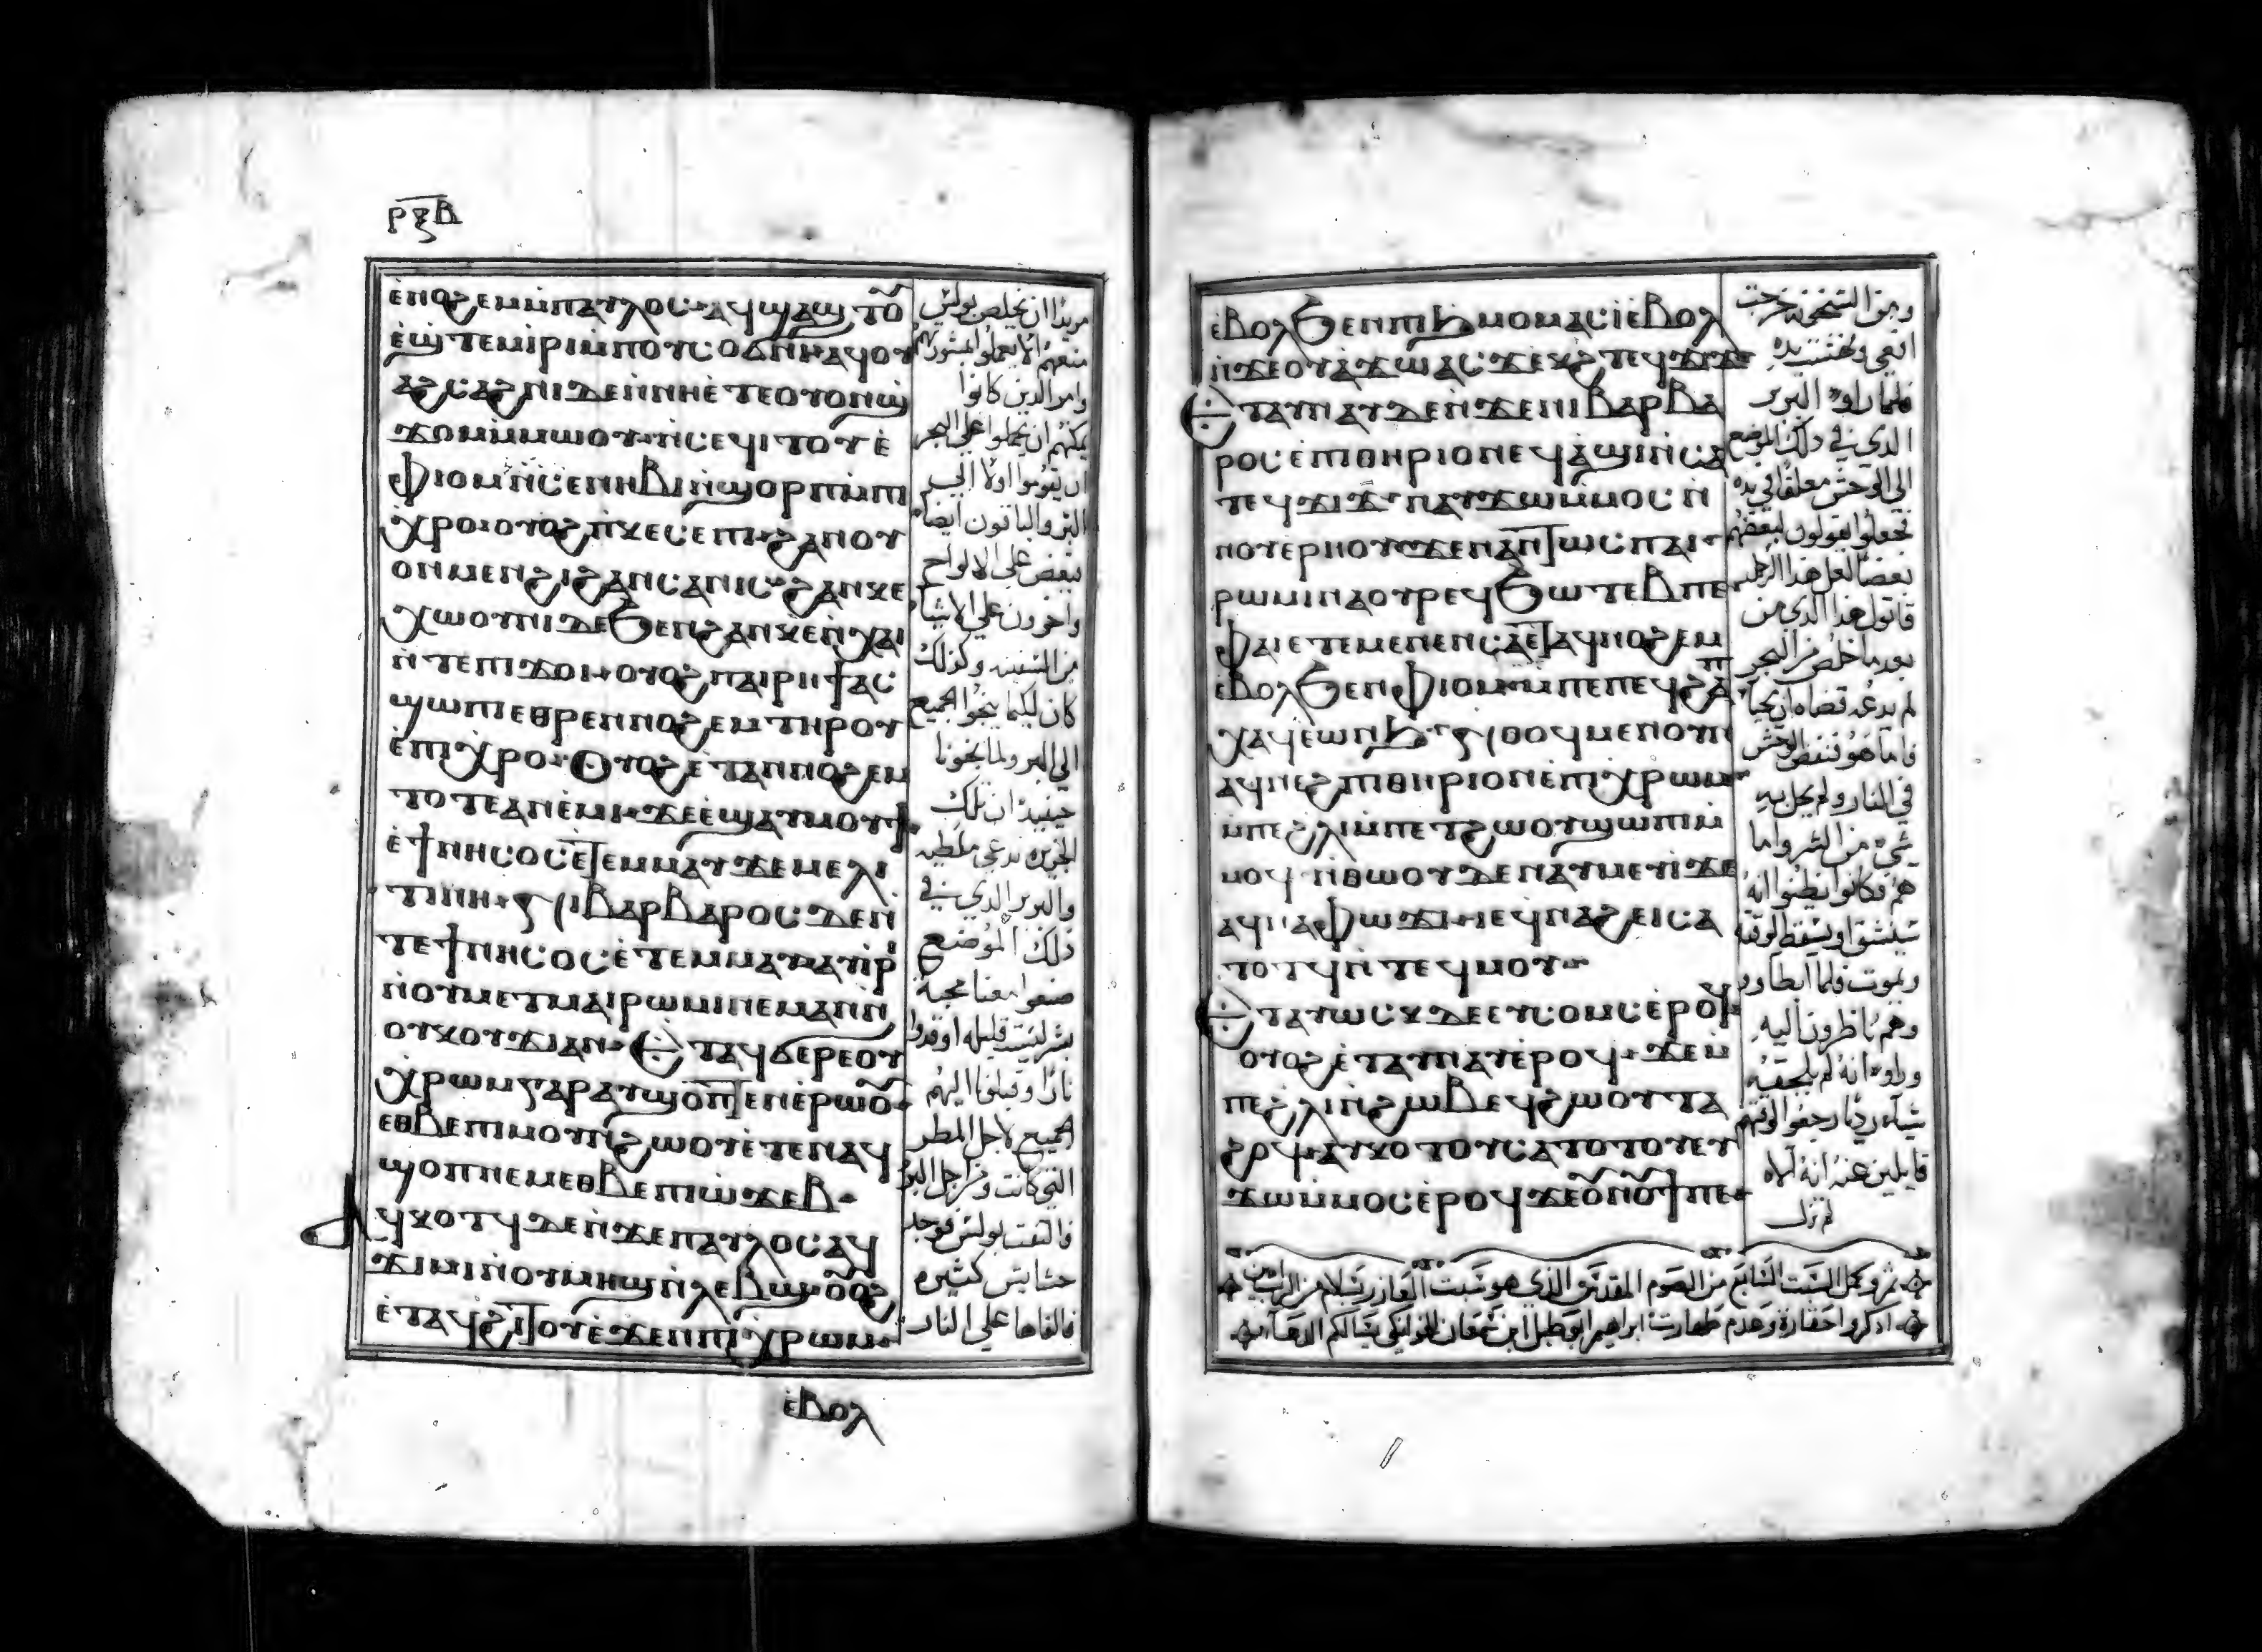 ⲣⲝⲃ
ⲉ̀ⲛⲟϩⲉⲙ ⲙ̀ⲡⲁⲩⲗⲟⲥ ⲁϥϣⲁϣⲧⲟⲩ
ⲉ̀ϣⲧⲉⲙⲓⲣⲓ ⲙ̀ⲡⲟⲩⲥⲟϭⲛⲓ ⲁϥⲟⲩ
ⲁϩⲥⲁϩⲛⲓ ⲇⲉ ⲛ̀ⲛⲏⲉ̀ⲧⲉ ⲟⲩⲟⲛϣ̀
ϫⲟⲙ ⲙ̀ⲙⲱⲟⲩ ⲛ̀ⲥⲉϥⲓⲧⲟⲩ ⲉ̀
ⲫⲓⲟⲙ ⲛ̀ⲥⲉⲛⲏⲃⲓ ⲛ̀ϣⲟⲣⲡ ⲙ̀ⲡⲓ
ⲭⲣⲟ ⲟⲩⲟϩ ⲡ̀ⲕⲉⲥⲉⲡⲓ ϩⲁⲛⲟⲩ
ⲟⲛ ⲙⲉⲛ ϩⲓ ϩⲁⲛⲥⲁⲛⲓⲥ ϩⲁⲛⲕⲉ
ⲭⲱⲟⲩⲛⲓ ⲇⲉ ϧⲉⲛ ϩⲁⲛⲕⲉⲛ̀ⲭⲁⲓ
ⲛ̀ⲧⲉ ⲡⲓϫⲟⲓ ⲟⲩⲟϩ ⲡⲁⲓⲣⲏϯ ⲁⲥ
ϣⲱⲡⲓ ⲉⲑⲣⲉⲛⲛⲟϩⲉⲙ ⲧⲏⲣⲟⲩ
ⲉ̀ⲡⲓⲭⲣⲟ Ⲟⲩⲟϩ ⲉ̀ⲧⲁⲛⲛⲟϩⲉⲙ
ⲧⲟⲧⲉ ⲁⲛⲉ̀ⲙⲓ ϫⲉ ⲉ̀ϣⲁⲩⲙⲟⲩϯ
ⲉ̀ϯⲛⲏⲥⲟⲥ ⲉ̀ⲧⲉⲙⲙⲁⲩ ϫⲉ ⲙⲉⲗⲓ
ⲧⲓⲛⲏ ⲛⲓⲃⲁⲣⲃⲁⲣⲟⲥ ⲇⲉ ⲛ̀
ⲧⲉ ϯⲛⲏⲥⲟⲥ ⲉ̀ⲧⲉⲙⲙⲁⲩ ⲛⲁⲩⲓⲣⲓ
ⲛ̀ⲟⲩⲙⲉⲧⲙⲁⲓⲣⲱⲙⲓ ⲛⲉⲙⲁⲛ ⲛ̀
ⲟⲩⲕⲟⲩϫⲓ ⲁⲛ Ⲉⲧⲁⲩϭⲉⲣⲉ ⲟⲩ
ⲭⲣⲱⲙ ⲅⲁⲣ ⲁⲩϣⲟⲡⲧⲉⲛ ⲉ̀ⲣⲱⲟⲩ
ⲉⲑⲃⲉ ⲡⲓⲙⲟⲩⲛ̀ϩⲱⲟⲩ ⲉ̀ⲧⲉⲛⲁϥ
ϣⲟⲡ ⲛⲉⲙ ⲉⲑⲃⲉ ⲡⲓⲱ̀ϫⲉⲃ
ⲁϥⲕⲟⲧϥ ⲇⲉ ⲛ̀ϫⲉ ⲡⲁⲩⲗⲟⲥ ⲁϥ
ϫⲓⲙⲓ ⲛ̀ⲟⲩⲙⲏϣ ⲛ̀ⲗⲉⲃϣ ⲟⲩⲟϩ
ⲉ̀ⲧⲁϥϩⲓⲧⲟⲩ ⲉ̀ϫⲉⲛ ⲡⲓⲭⲣⲱⲙ
ⲉ̀ⲃⲟⲗ
مريدا ان يخلص بولس
منعهم الا يعملوا المشورتهم
وامر الذين كانوا
يمكنهم ان يحملوا علي البحر
ان يعوموا اولا الي
البر والباقون ايضا
فبعض علي الالواح
واخرون علي الاشيا
من السفينه وكذلك
كان لكيما ينجوا الجميع
الي البر ولما نجونا
حينيذ ان تلك
الجزيره تدعي ملطيه
والبربر الذي في
ذلك الموضع
صنعوا معنا محبة
بشر ليست قليله اوقدوا
نارا وقبلونا اليهم
الجميع لاجل المطر
التي كانت ومن اجل البرد
فالتفت بولس فوجد
حشايش كثيره
فالقاها علي النار
ⲉ̀ⲃⲟⲗϧⲉⲛ ⲡⲓϧ̀ⲙⲟⲙ ⲁⲥⲓ̀ ⲉ̀ⲃⲟⲗ
ⲛ̀ϫⲉ ⲟⲩⲁ̀ϫⲱ ⲁⲥϫⲉⲕϩ ⲧⲉϥϫⲓϫ
Ⲉⲧⲁⲩⲛⲁⲩ ⲇⲉ ⲛ̀ϫⲉ ⲛⲓⲃⲁⲣⲃⲁ
ⲣⲟⲥ ⲉ̀ⲡⲓⲑⲏⲣⲓⲟⲛ ⲉϥⲁ̀ϣⲓ ⲛ̀ⲥⲁ
ⲧⲉϥϫⲓϫ ⲛⲁⲩϫⲱ ⲙ̀ⲙⲟⲥ ⲛ̀
ⲛⲟⲩⲉ̀ⲣⲏⲟⲩ ϫⲉ ⲡⲁⲛⲧⲱⲥ ⲡⲁⲓ
ⲣⲱⲙⲓ ⲛⲁⲟⲩⲣⲉϥϧⲱⲧⲉⲃ ⲡⲉ
ⲫⲁⲓ ⲉ̀ⲧⲉ ⲙⲉⲛⲉⲛⲥⲁ ⲉ̀ⲧⲁϥⲛⲟϩⲉⲙ
ⲉ̀ⲃⲟⲗϧⲉⲛ ⲫⲓⲟⲙ ⲙ̀ⲡⲉ ⲡⲉϥϩⲁⲡ
ⲭⲁϥ ⲉ̀ⲱⲛϧ ⲛ̀ⲑⲟϥ ⲙⲉⲛ ⲟⲩⲛ
ⲁϥⲛⲉϩ ⲡⲓⲑⲏⲣⲓⲟⲛ ⲉ̀ⲡⲓⲭⲣⲱⲙ
ⲙ̀ⲡⲉ ϩ̀ⲗⲓ ⲙ̀ⲡⲉⲧϩⲱⲟⲩ ϣⲱⲡⲓ ⲙ̀
ⲙⲟϥ ⲛ̀ⲑⲱⲟⲩ ⲇⲉ ⲛⲁⲩⲙⲉⲩⲓ ϫⲉ
ⲁϥⲛⲁⲫⲱϫⲓ ⲓⲉ ϥⲛⲁϩⲉⲓ ⲥⲁ
ⲧⲟⲧϥ ⲛ̀ⲧⲉϥⲙⲟⲩ
Ⲉⲧⲁⲩⲱⲥⲕ ⲇⲉ ⲉⲩⲥⲟⲙⲥ ⲉ̀ⲣⲟϥ
ⲟⲩⲟϩ ⲉ̀ⲧⲁⲩⲛⲁⲩ ⲉ̀ⲣⲟϥ ϫⲉ ⲙ̀
ⲡⲉ ϩ̀ⲗⲓ ⲛ̀ϩⲱⲃ ⲉϥϩⲱⲟⲩ ⲧⲁ
ϩⲟϥ ⲁⲩⲕⲟⲧⲟⲩ ⲥⲁⲧⲟⲧⲟⲩ ⲉⲩ
ϫⲱ ⲙ̀ⲙⲟⲥ ⲉ̀ⲣⲟϥ ϫⲉ ⲟⲩⲛⲟⲩϯ ⲡⲉ
ومن السخونه خرجت
افعي ونهشت يده
فلما راوه البربر
الذي في ذلك الموضع
الي الوحش معلقا في يده
فجعلوا يقولون لبعضهم
بعضا لعل هذا الرجل
قاتول هذا الذي من
بعد ما خلص من البحر
لم يدعه قضاه ان يحيا
فاما هو فنفض الوحش
في النار ولم يحل به
شي من الشر واما
هم فكانوا يظنوا انه
سينشق او يسقط لوقته
ويموت فلما ابطاوا
وهم ناظرون اليه
وراوه انه لم يلحقه
شياء ردي رجعوا لوقتهم
قايلين عنه انه الاه
لم نزل
تم وكمل السبت السابع من الصوم المقدس الذي هو سبت العازر بسلام من الرب امين
اذكروا حقارة وعدم طهارت ابراهيم ابو طبل ابن سمعان الخوانكي يسالكم الدعا